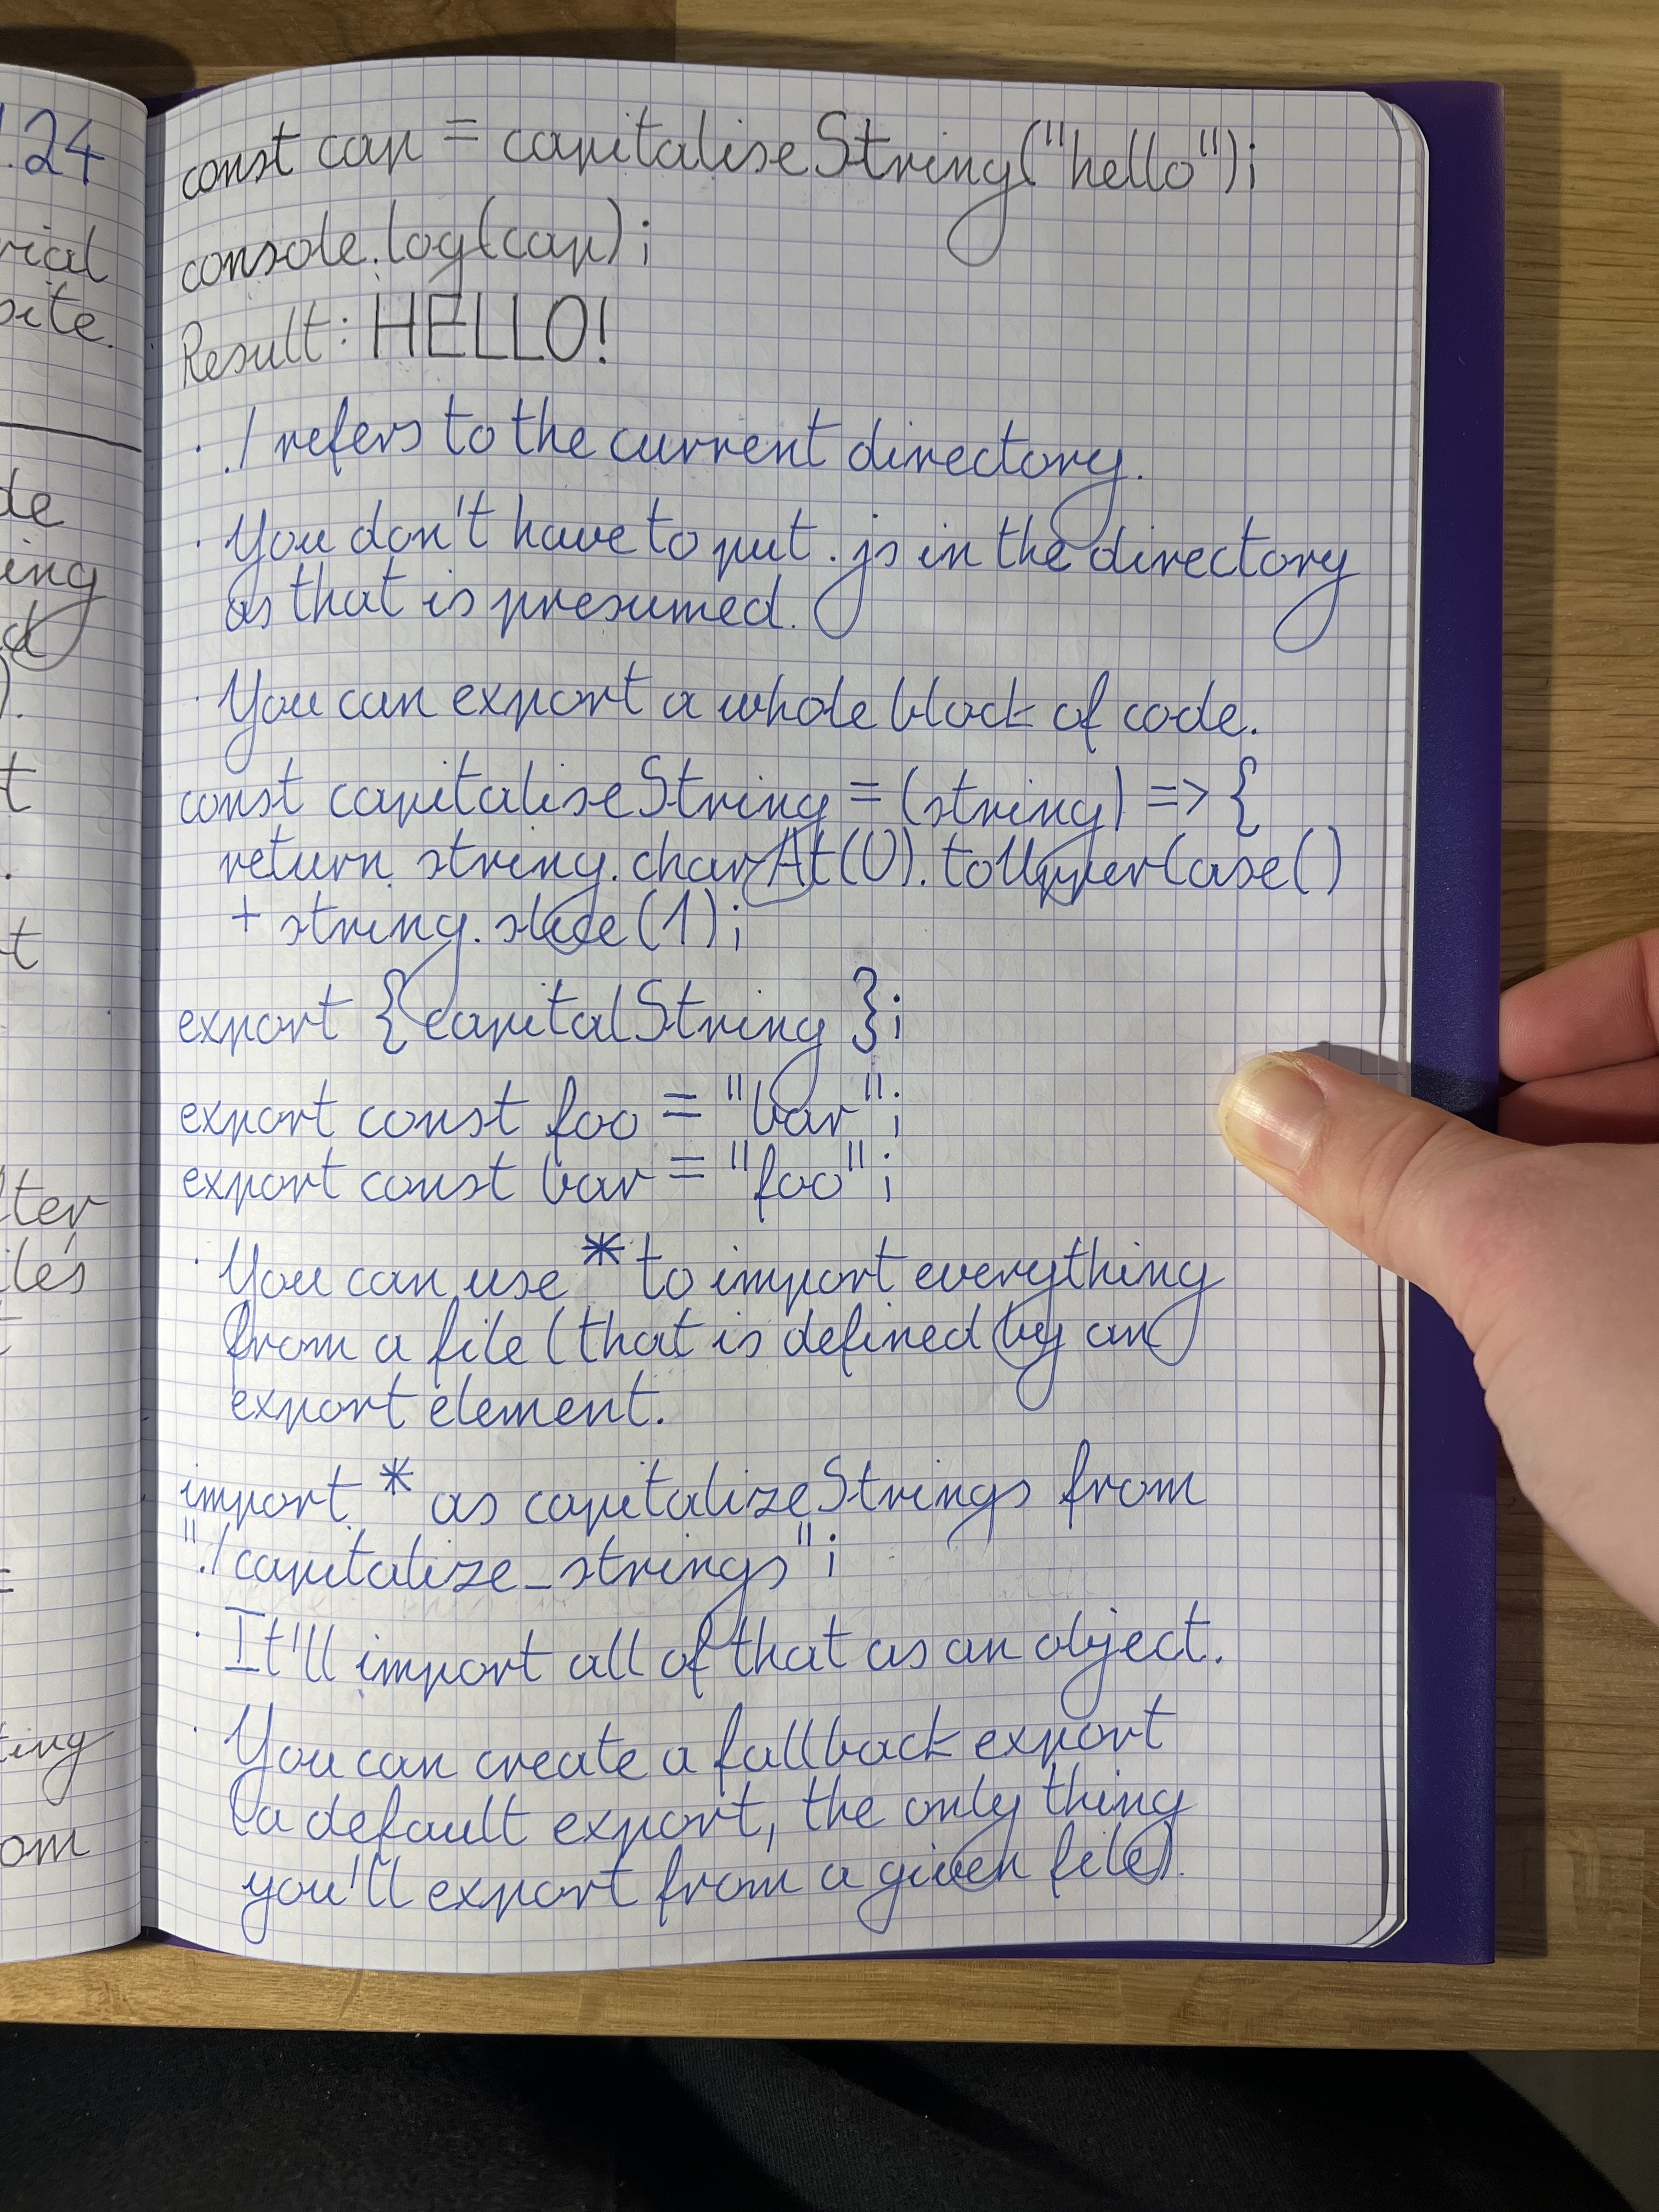 .24
rial
site.
de
ing
d
).
t
.
t
lter
iles
t
=
ting
om
const cap = capitaliseString("hello");
console.log(cap);
Result: HELLO!
· ./ refers to the current directory.
· You don't have to put .js in the directory
as that is presumed.
· You can export a whole block of code.
const capitaliseString = (string) => {
return string.charAt(0).toUpperCase()
+ string.slice(1);
export {capitalString };
export const foo = "bar";
export const bar = "foo";
· You can use * to import everything
from a file (that is defined by an
export element.
import * as capitalizeStrings from
"./capitalize_strings";
· It'll import all of that as an object.
· You can create a fallback export
(a default export, the only thing
you'll export from a given file).